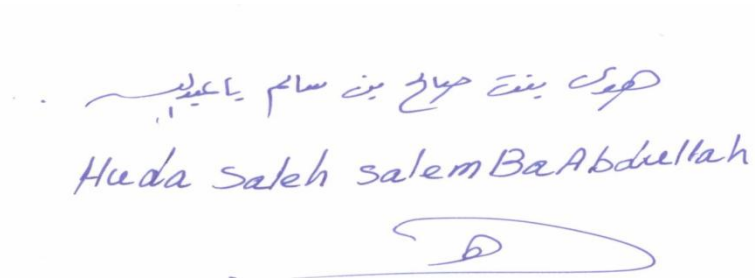 هدى بنت صالح بن سالم باعبدالله
Huda Saleh Salem BaAbdullah